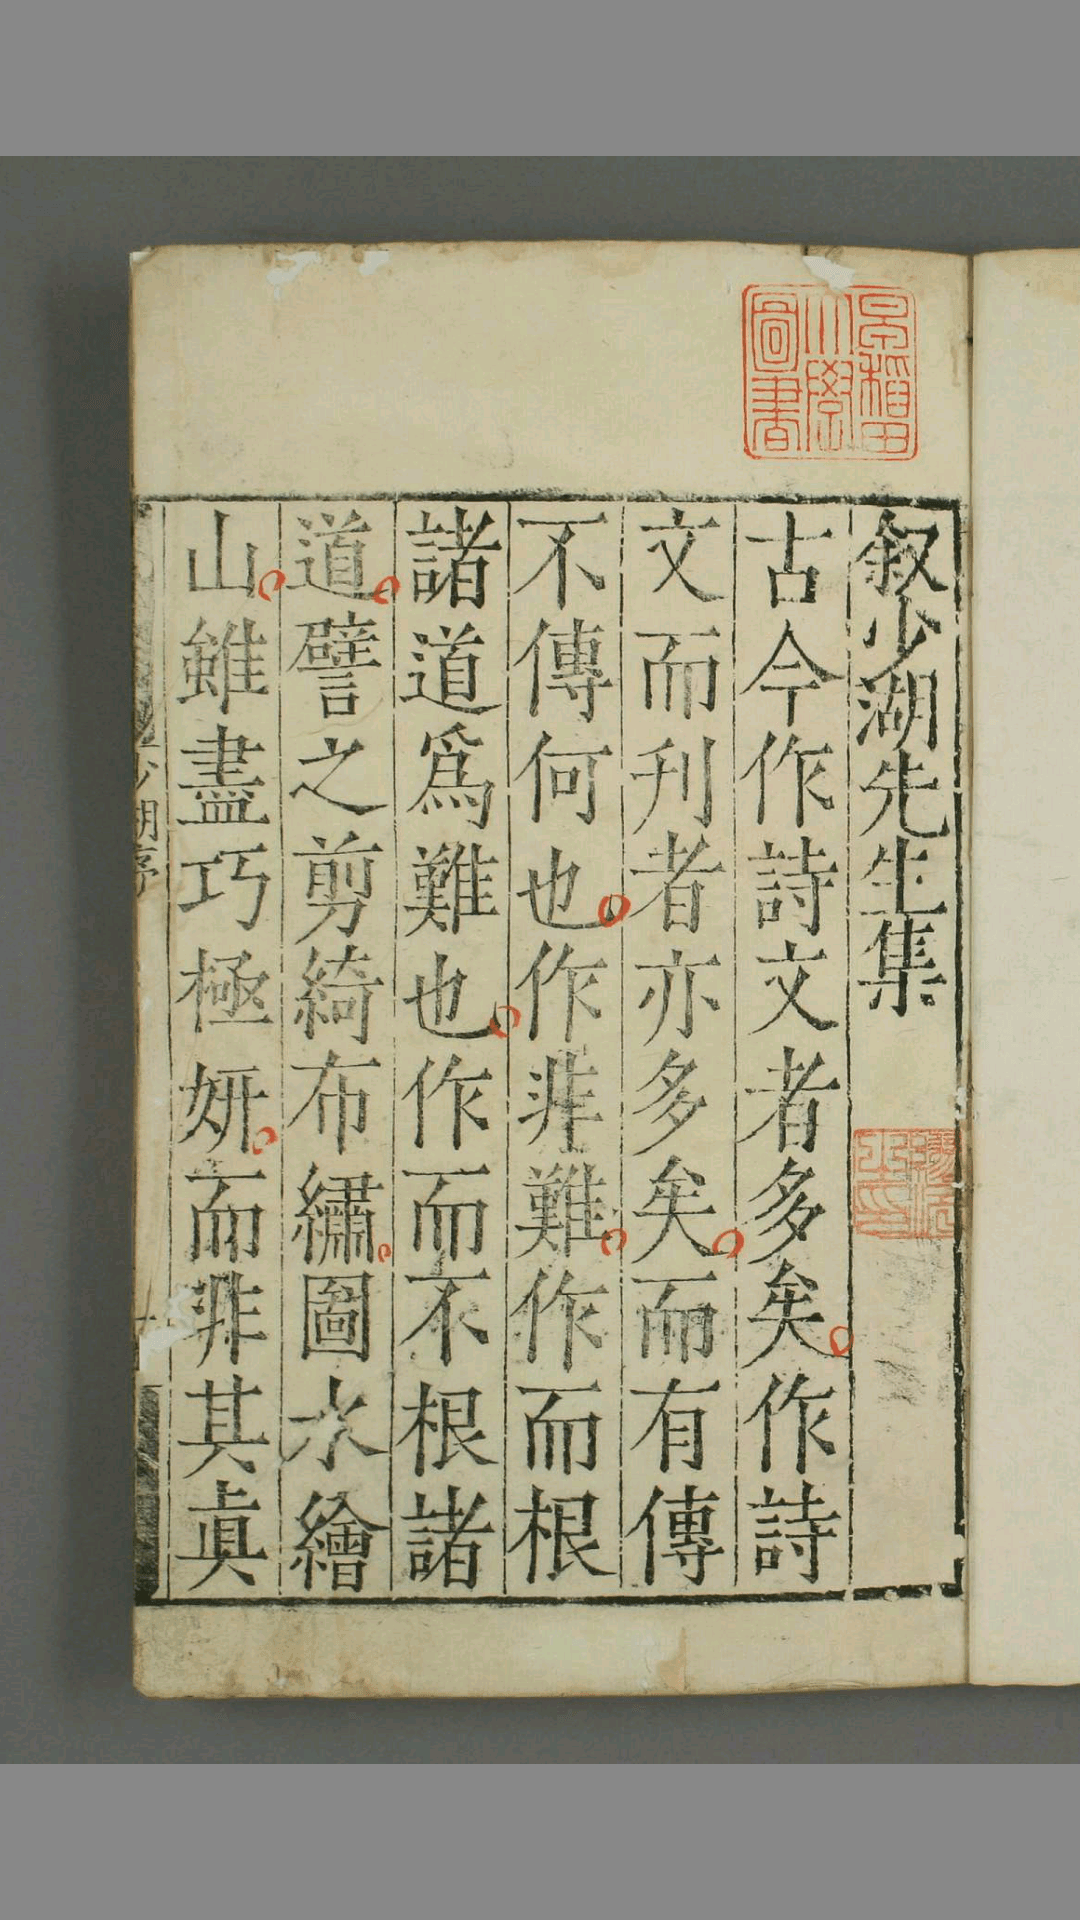 叙少湖先生集
古今作詩文者多矣作詩
文而刋者亦多矣而有傳
不傳何也作非難作而根
諸道爲難也作而不根諸
道譬之剪綺布繡圖水繪
山雖盡巧極妍而非其眞
少湖序
早稲田
大學
圖書